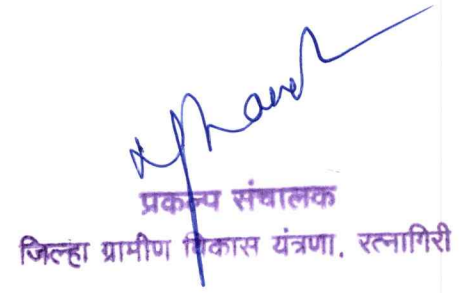 प्रकल्प संचालक
जिल्हा ग्रामीण विकास यंत्रणा, रत्नागिरी